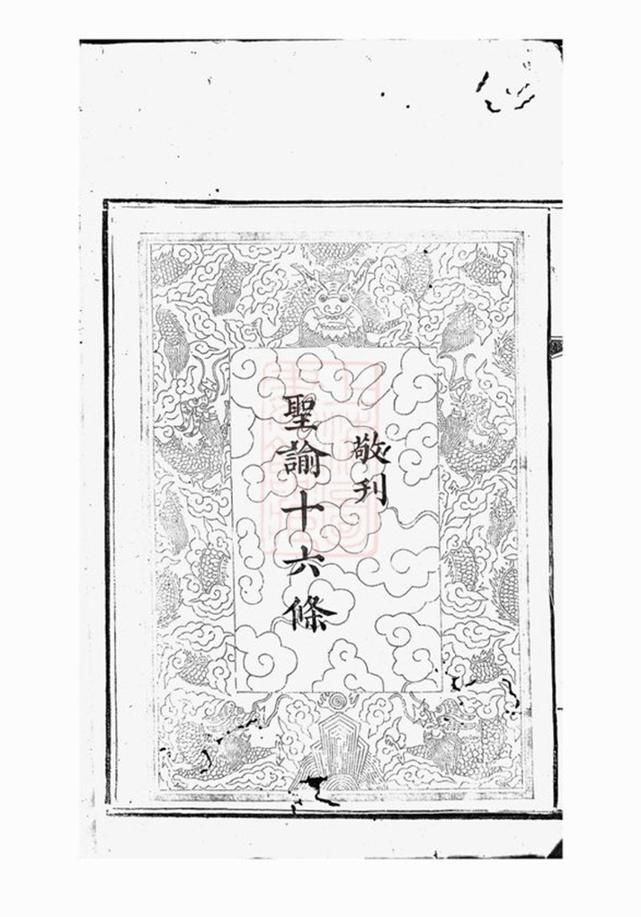 敬刊
聖諭十六條